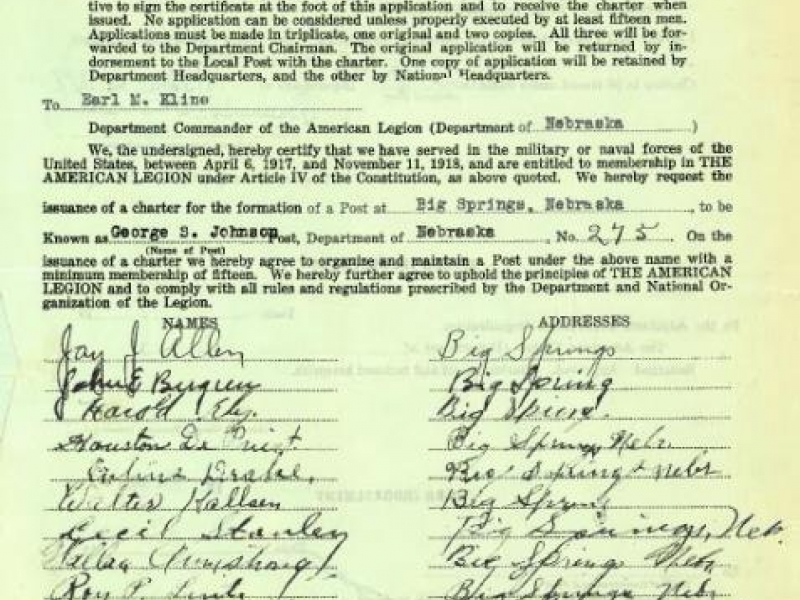 tive to sign the certificate at the foot of this application and to receive the charter when
issued. No application can be considered unless properly executed by at least fifteen men.
Applications must be made in triplicate, one original and two copies. All three will be for-
warded to the Department Chairman. The original application will be returned by in-
dorsement to the Local Post with the charter. One copy of application will be retained by
Department Headquarters, and the other by National Headquarters.
To Earl M. Kline
Department Commander of the American Legion (Department of Nebraska )
We, the undersigned, hereby certify that we have served in the military or naval forces of the
United States, between April 6, 1917, and November 11, 1918, and are entitled to membership in THE
AMERICAN LEGION under Article IV of the Constitution, as above quoted. We hereby request the
issuance of a charter for the formation of a Post at Big Springs, Nebraska , to be
Known as George S. Johnson Post, Department of Nebraska , No. 275 . On the
(Name of Post)
issuance of a charter we hereby agree to organize and maintain a Post under the above name with a
minimum membership of fifteen. We hereby further agree to uphold the principles of THE AMERICAN
LEGION and to comply with all rules and regulations prescribed by the Department and National Or-
ganization of the Legion.
NAMES ADDRESSES
Jay J Allen Big Springs
John E Bergren Big Spring
Harold Ely. Big Spring.
Houston De Big Springs Nebr.
Drake. Big Springs Nebr
Walter Hallsen Big Spring
Cecil Stanley Big Springs, Neb.
Armstrong Big Springs Nebr.
Roy P. Big Springs Nebr